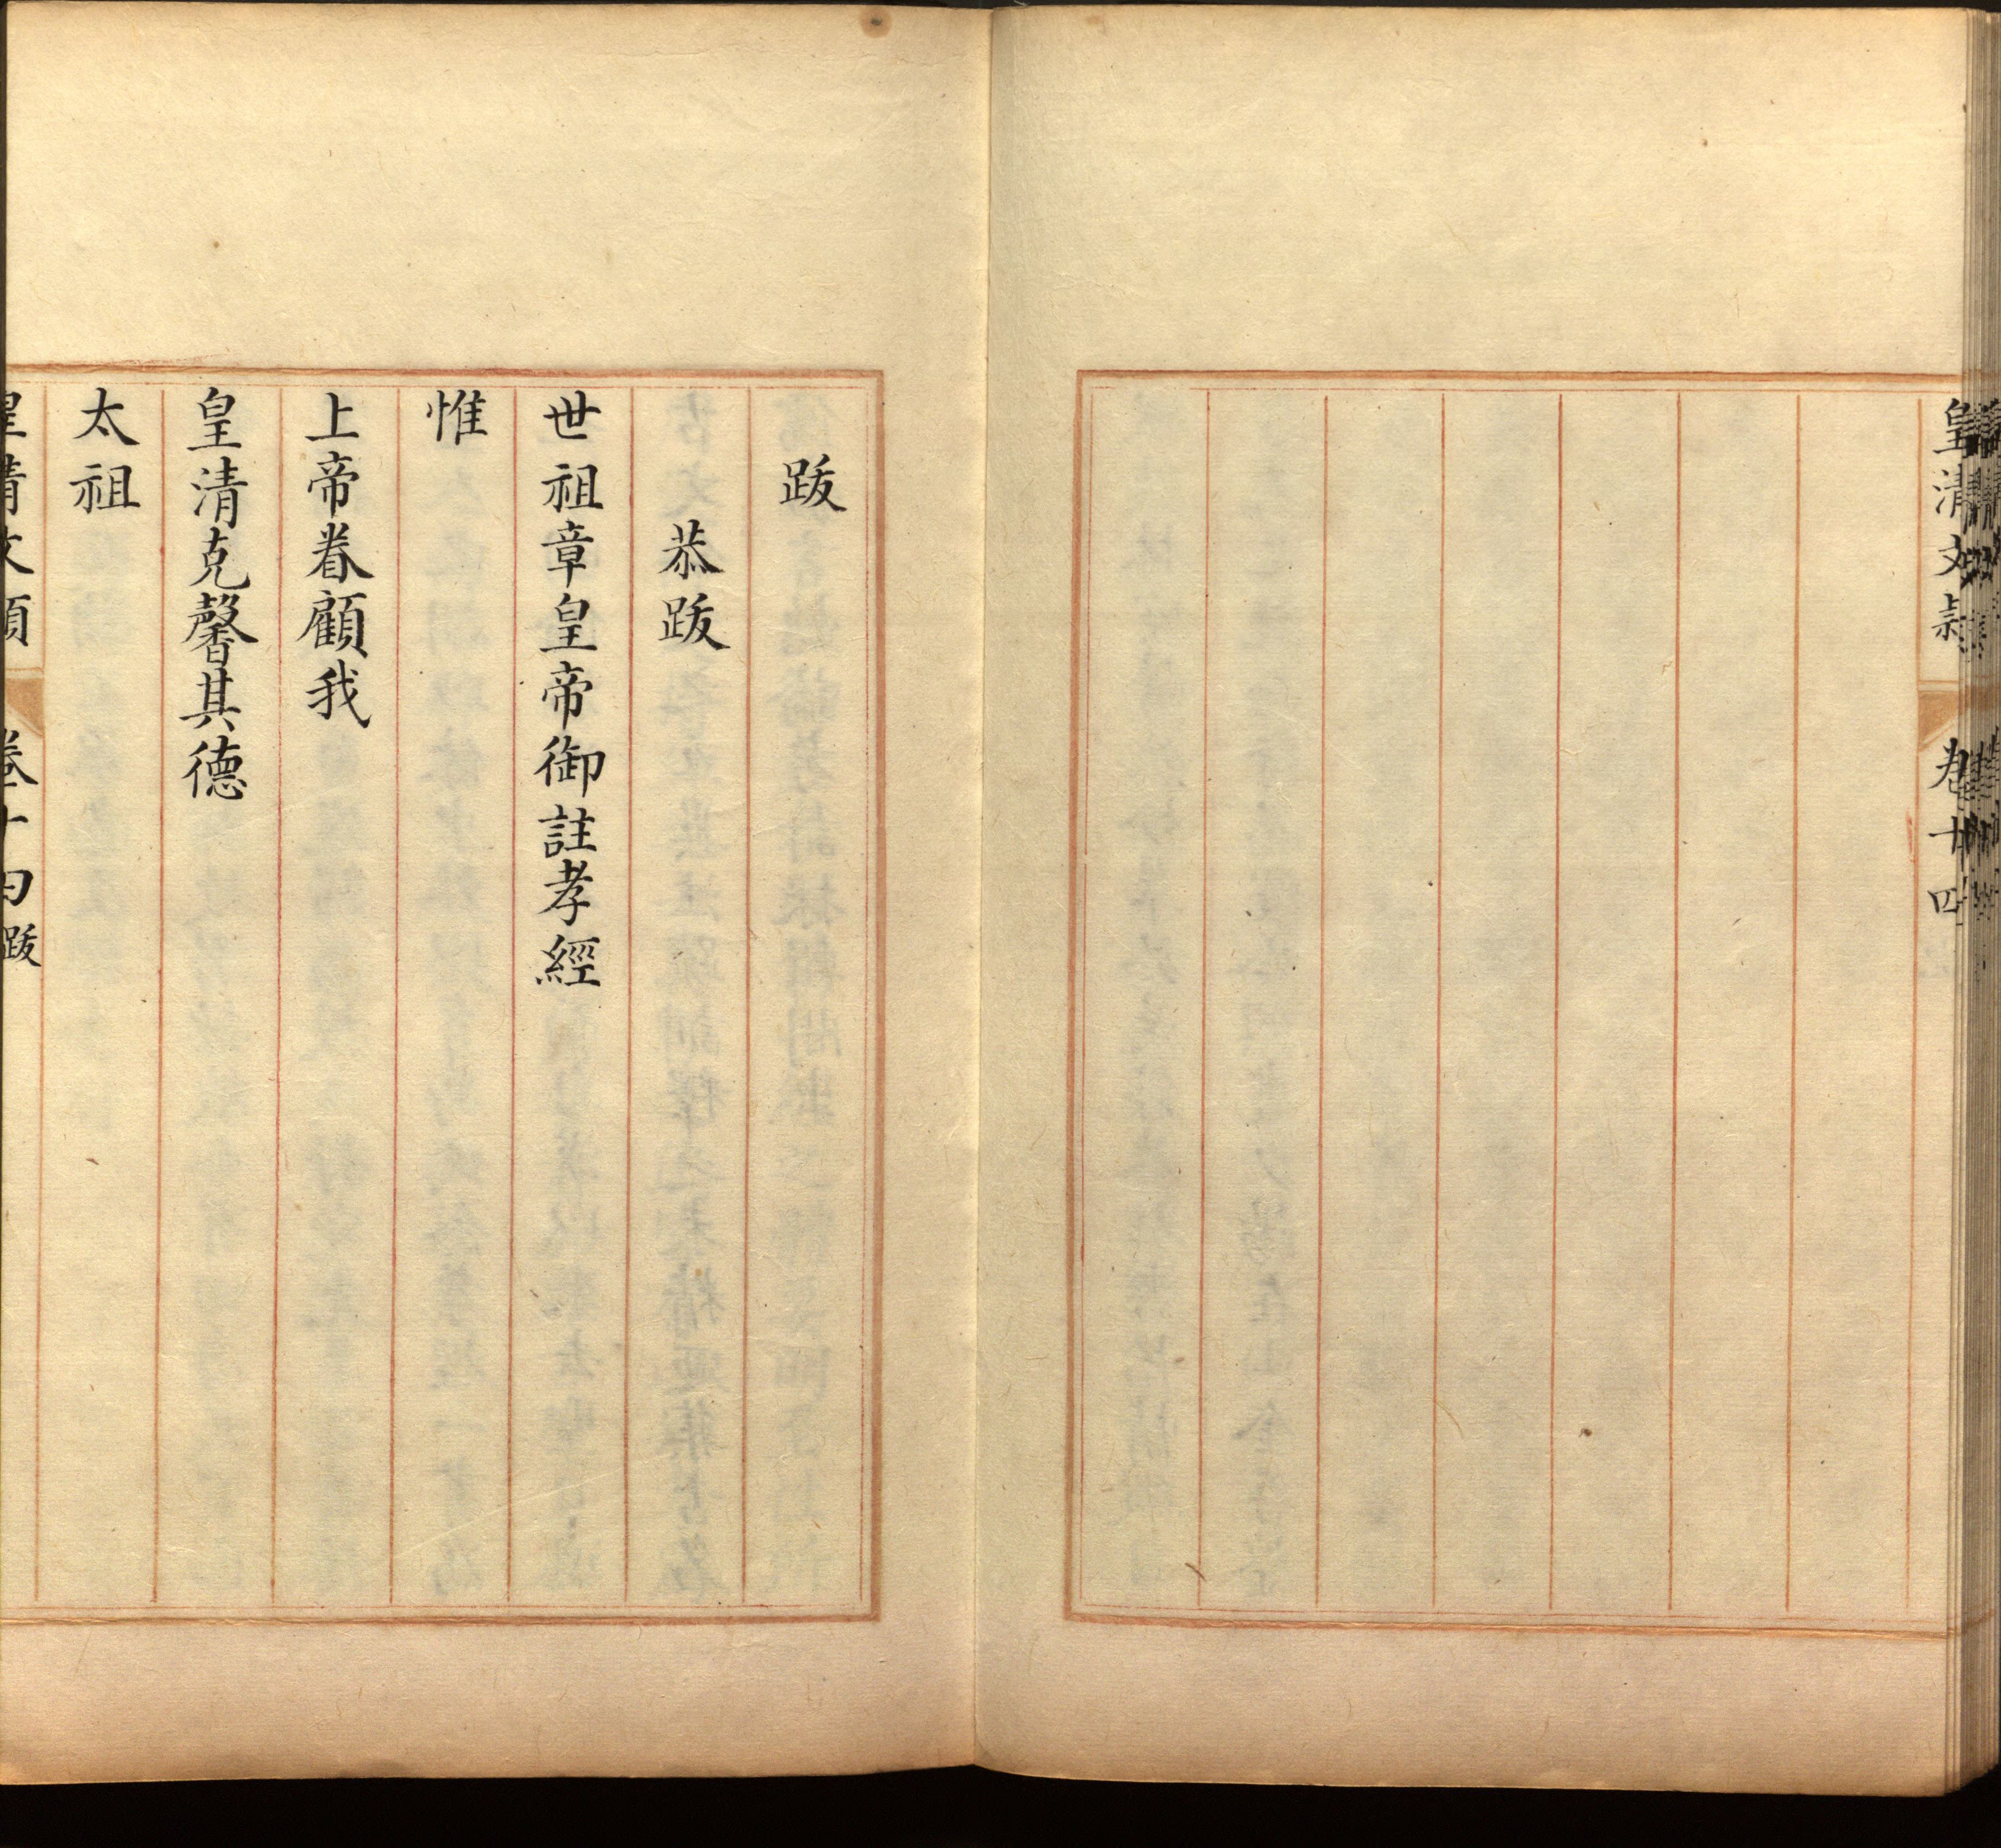 皇清文穎 卷十四
跋
恭跋
世祖章皇帝御註孝經
惟
上帝眷顧我
皇清克馨其德
太祖
皇清文穎 卷十四 跋